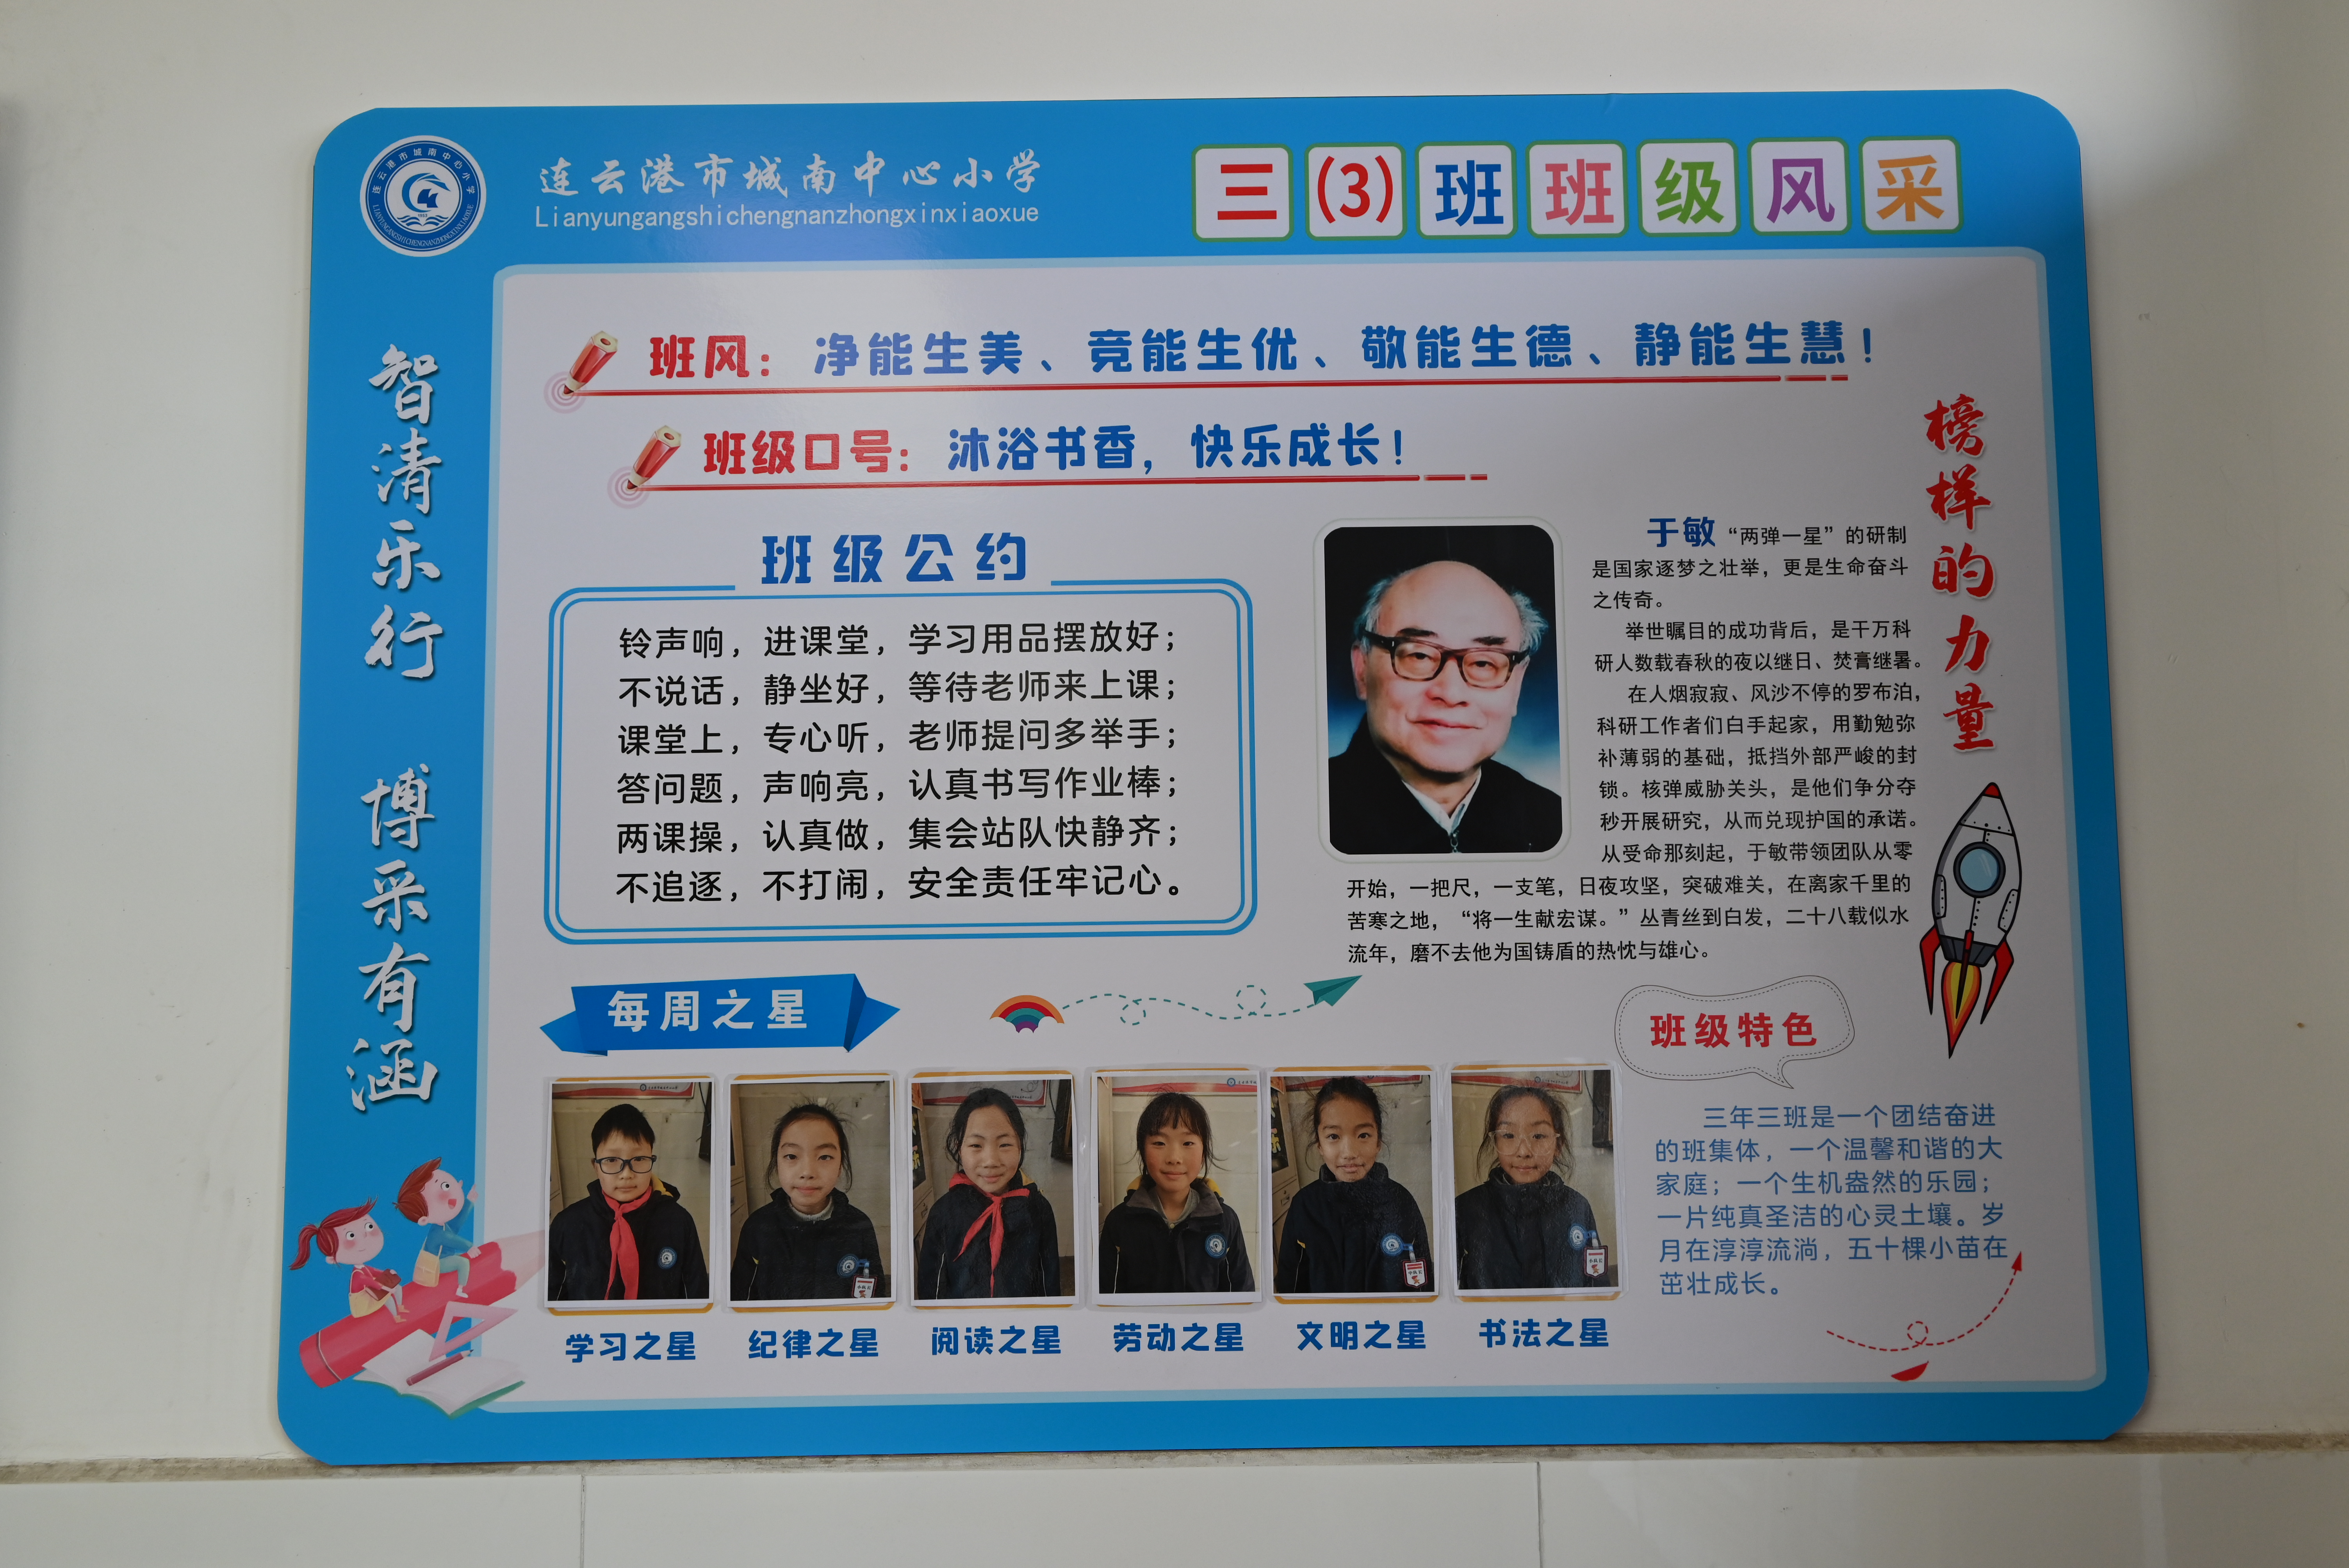 连云港市城南中心小学
LIANYUNGANGSHICHENGNANZHONGXINXIAOXUE
连云港市城南中心小学
Lianyungangshichengnanzhongxinxiaoxue
三(3)班班级风采
智清乐行 博采有涵
班风：净能生美、竞能生优、敬能生德、静能生慧！
班级口号：沐浴书香，快乐成长！
班级公约
铃声响，进课堂，学习用品摆放好；
不说话，静坐好，等待老师来上课；
课堂上，专心听，老师提问多举手；
答问题，声响亮，认真书写作业棒；
两课操，认真做，集会站队快静齐；
不追逐，不打闹，安全责任牢记心。
榜样的力量
于敏 “两弹一星”的研制
是国家逐梦之壮举，更是生命奋斗
之传奇。
举世瞩目的成功背后，是干万科
研人数载春秋的夜以继日、焚膏继晷。
在人烟寂寂、风沙不停的罗布泊，
科研工作者们白手起家，用勤勉弥
补薄弱的基础，抵挡外部严峻的封
锁。核弹威胁关头，是他们争分夺
秒开展研究，从而兑现护国的承诺。
从受命那刻起，于敏带领团队从零
开始，一把尺，一支笔，日夜攻坚，突破难关，在离家千里的
苦寒之地，“将一生献宏谋。”丛青丝到白发，二十八载似水
流年，磨不去他为国铸盾的热忱与雄心。
每周之星
学习之星
纪律之星
阅读之星
劳动之星
文明之星
书法之星
班级特色
三年三班是一个团结奋进
的班集体，一个温馨和谐的大
家庭；一个生机盎然的乐园；
一片纯真圣洁的心灵土壤。岁
月在淳淳流淌，五十棵小苗在
茁壮成长。